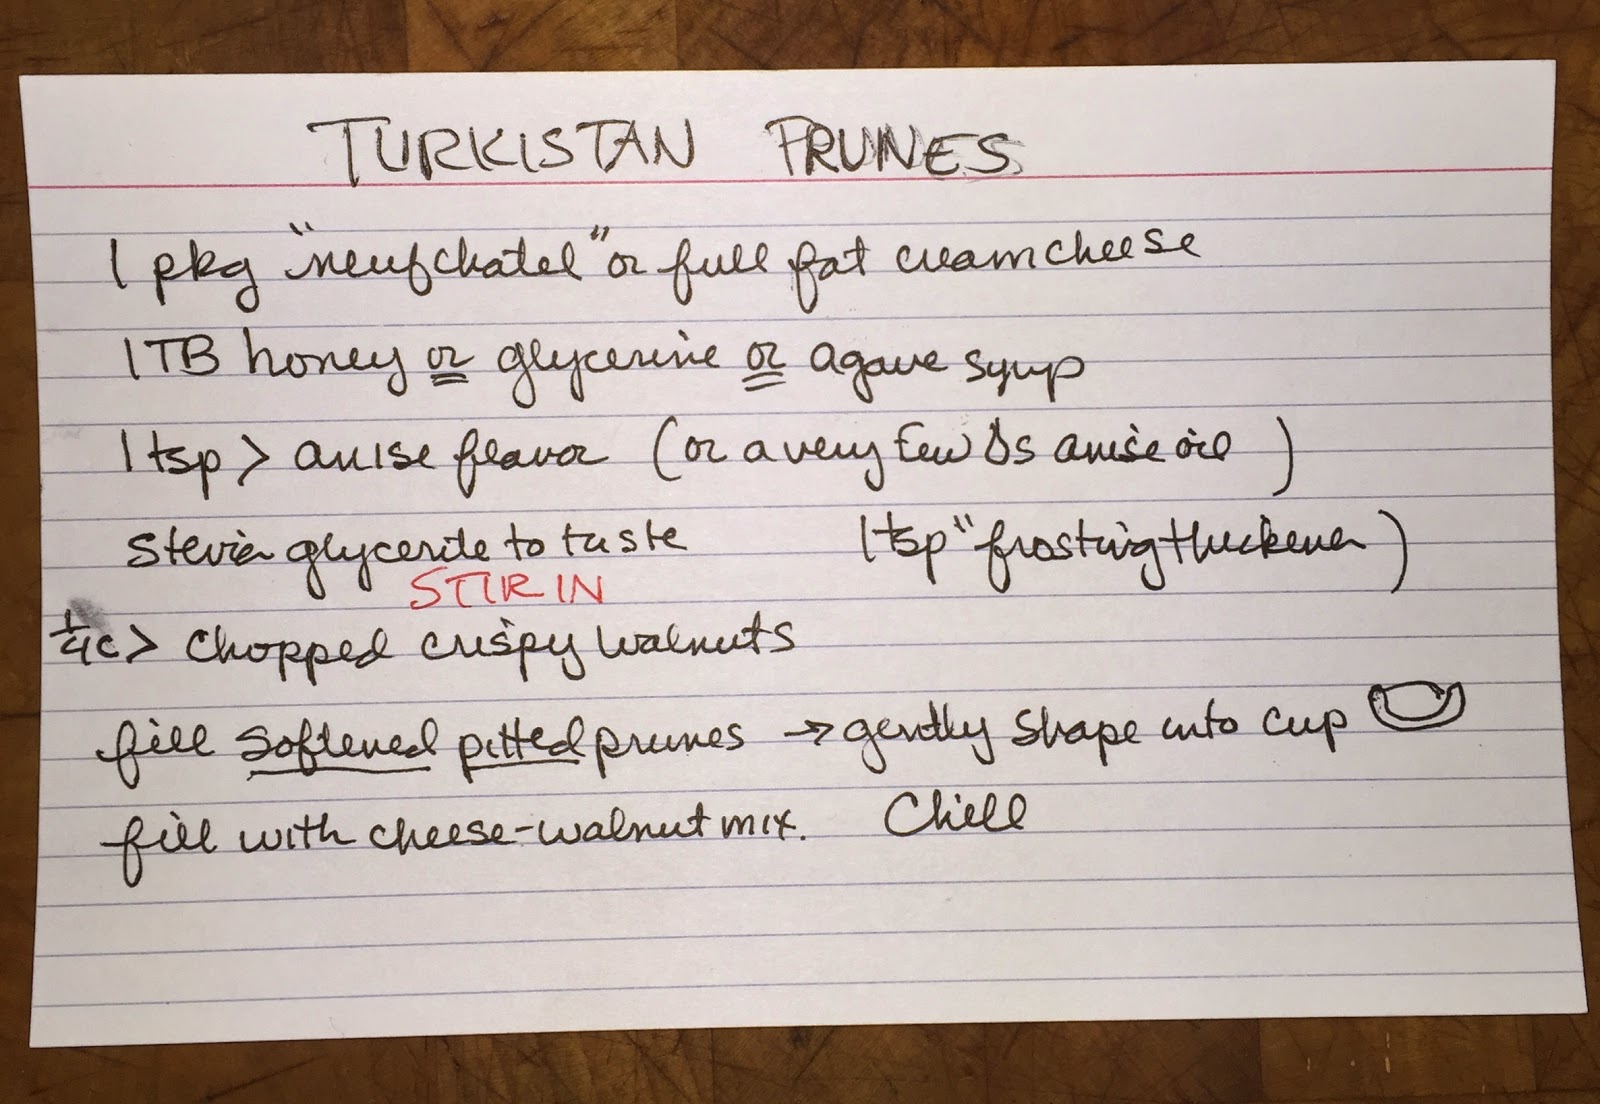 TURKISTAN PRUNES
1 pkg "neufchatel" or full fat creamcheese
1 TB honey or glycerine or agave syrup
1 tsp > anise flavor (or a very few ∆s anise oil)
Stevia glycerite to taste 1 tsp "frosting thickener)
STIR IN
1/4 c > chopped crispy walnuts
fill softened pitted prunes → gently shape into cup
fill with cheese-walnut mix. Chill